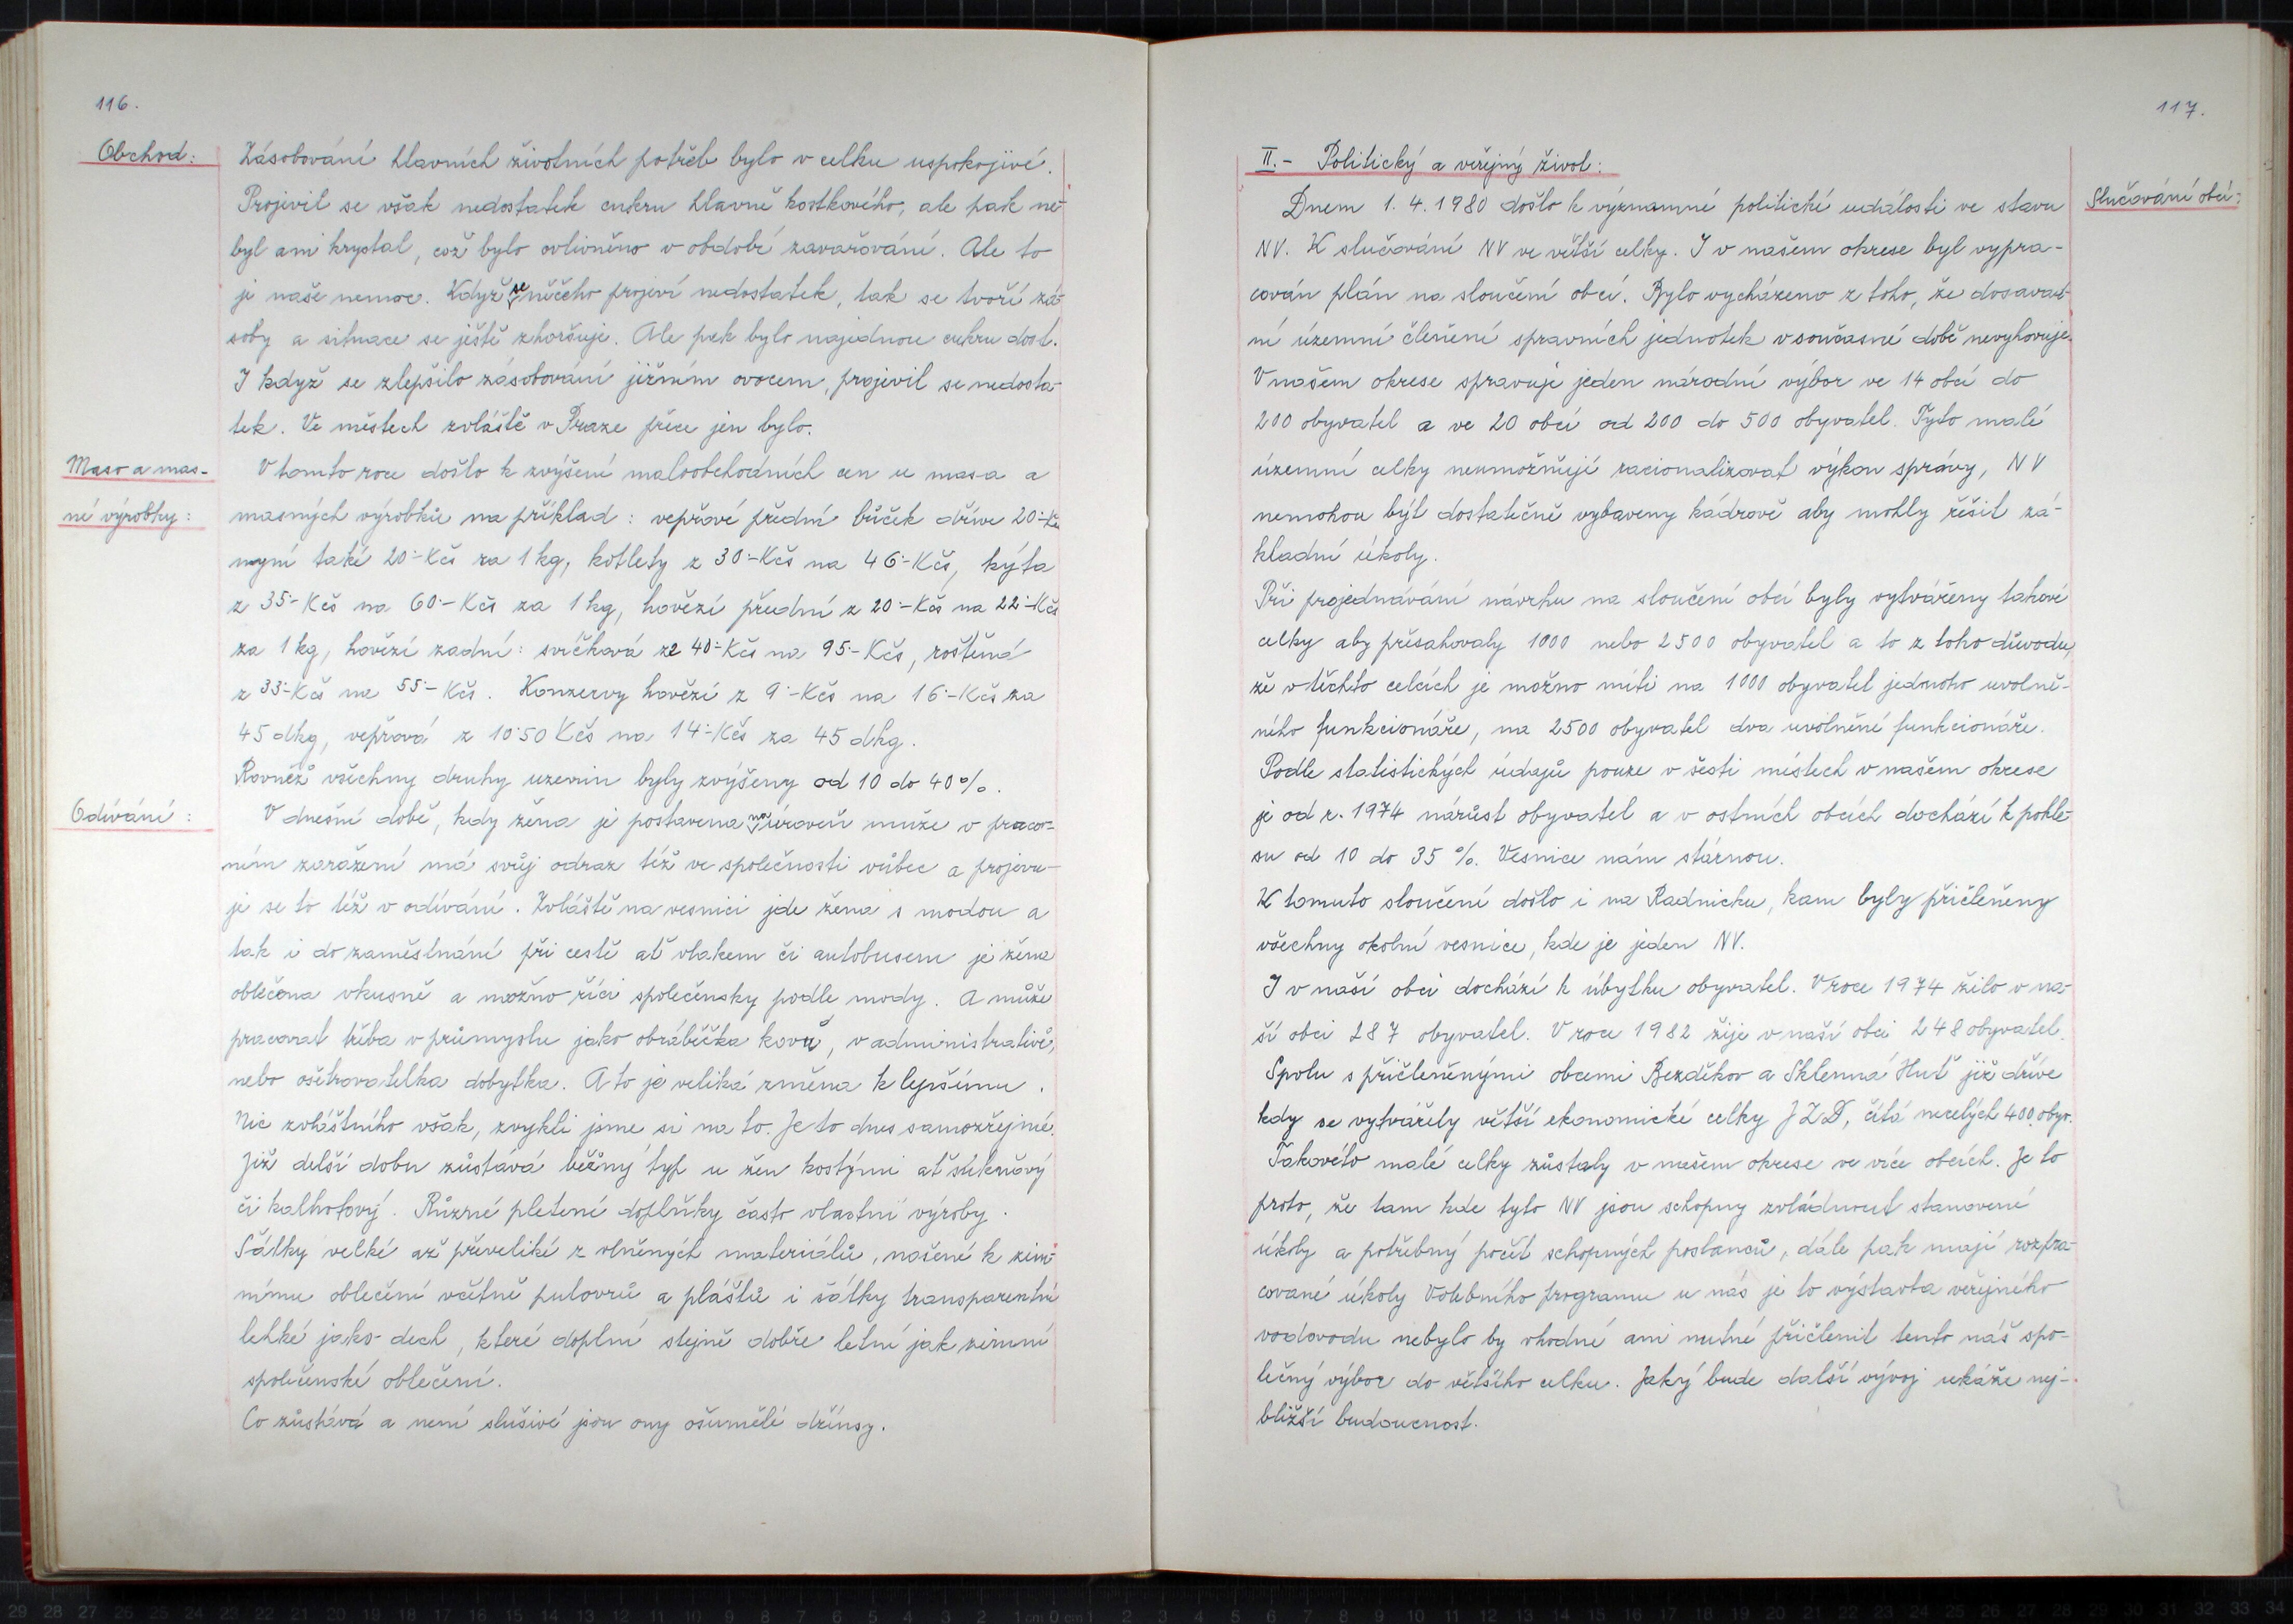 116.
Obchod:
Zásobování hlavních životních potřeb bylo v celku uspokojivé.
Projevil se však nedostatek cukru hlavně kostkového, ale pak ne-
byl ani krystal, což bylo ovlivněno v období zavařování. Ale to
je naše nemoc. Když se něčeho projeví nedostatek, tak se tvoří zá-
soby a situace se ještě zhoršuje. Ale pak bylo najednou cukru dost.
I když se zlepšilo zásobování jižním ovocem, projevil se nedosta-
tek. Ve městech zvláště v Praze přece jen bylo.
Maso a mas-
né výrobky:
V tomto roce došlo k zvýšení maloobchodních cen u masa a
masných výrobků na příklad: vepřové přední bůček dříve 20·-Kčs
nyní také 20·-Kčs za 1 kg, kotlety z 30·-Kčs na 46·-Kčs, kýta
z 35·-Kčs na 60·-Kčs za 1 kg, hovězí přední z 20·-Kčs na 22·-Kčs
za 1 kg, hovězí zadní: svíčková ze 40·-Kčs na 95·-Kčs, roštěná
z 33·-Kčs na 55·-Kčs. Konzervy hovězí z 9·-Kčs na 16·-Kčs za
45 dkg, vepřová z 10·50 Kčs na 14·-Kčs za 45 dkg.
Rovněž všechny druhy uzenin byly zvýšeny od 10 do 40%.
Odívání:
V dnešní době, kdy žena je postavena na úroveň muže v praco-
ním zařazení má svůj odraz též ve společnosti vůbec a projevu-
je se to též v odívání. Zvláště na vesnici jde žena s modou a
tak i do zaměstnání při cestě ať vlakem či autobusem je žena
oblečena vkusně a možno říci společensky podle mody. A může
pracovat třeba v průmyslu jako obráběčka kovů, v administrativě,
nebo ošetřovatelka dobytka. A to je veliká změna k lepšímu.
Nic zvláštního však, zvykli jsme si na to. Je to dnes samozřejmé.
Již delší dobu zůstává běžný typ u žen kostými ať sukňový
či kalhotový. Různé pletené doplňky často vlastní výroby.
Šátky velké až převeliké z vlněných materiálů, nošené k zim-
nímu oblečení včetně pulovrů a plášťů i šátky transparentní
lehké jako dech, které doplní stejně dobře letní jak zimní
společenské oblečení.
Co zůstává a není slušivé jsou ony ošumělé džínsy.
117.
II.- Politický a veřejný život:
Slučování obcí:
Dnem 1.4.1980 došlo k významné politické události ve stavu
NV. K slučování NV ve větší celky. I v našem okrese byl vypra-
cován plán na sloučení obcí. Bylo vycházeno z toho, že dosavad-
ní územní členění spravních jednotek v současné době nevyhovuje.
V našem okrese spravuje jeden národní výbor ve 14 obcí do
200 obyvatel a ve 20 obcí od 200 do 500 obyvatel. Tyto malé
územní celky neumožňují racionalizovat výkon správy, NV
nemohou být dostatečně vybaveny kádrově aby mohly řešit zá-
kladní úkoly.
Při projednávání návrhu na sloučení obcí byly vytvářeny takové
celky aby přesahovaly 1000 nebo 2500 obyvatel a to z toho důvodu,
že v těchto celcích je možno míti na 1000 obyvatel jednoho uvolně-
ného funkcionáře, na 2500 obyvatel dva uvolněné funkcionáře.
Podle statistických údajů pouze v šesti místech v našem okrese
je od r. 1974 nárůst obyvatel a v ostních obcích dochází k pokle-
su od 10 do 35 %. Vesnice nám stárnou.
K tomuto sloučení došlo i na Radnicku, kam byly přičleněny
všechny okolní vesnice, kde je jeden NV.
I v naší obci dochází k úbytku obyvatel. V roce 1974 žilo v na-
ší obci 287 obyvatel. V roce 1982 žije v naší obci 248 obyvatel.
Spolu s přičleněnými obcemi Bezděkov a Sklenná Huť již dříve
kdy se vytvářely větší ekonomické celky JZD, čítá necelých 400 obyv.
Takovéto malé celky zůstaly v našem okrese ve více obcích. Je to
proto, že tam kde tyto NV jsou schopny zvládnout stanovené
úkoly a potřebný počet schopných poslanců, dále pak mají rozpra-
cované úkoly Volebního programu u nás je to výstavba veřejného
vodovodu nebylo by vhodné ani nutné přičlenit tento náš spo-
lečný výbor do většího celku. Jaký bude další vývoj ukáže nej-
bližší budoucnost.